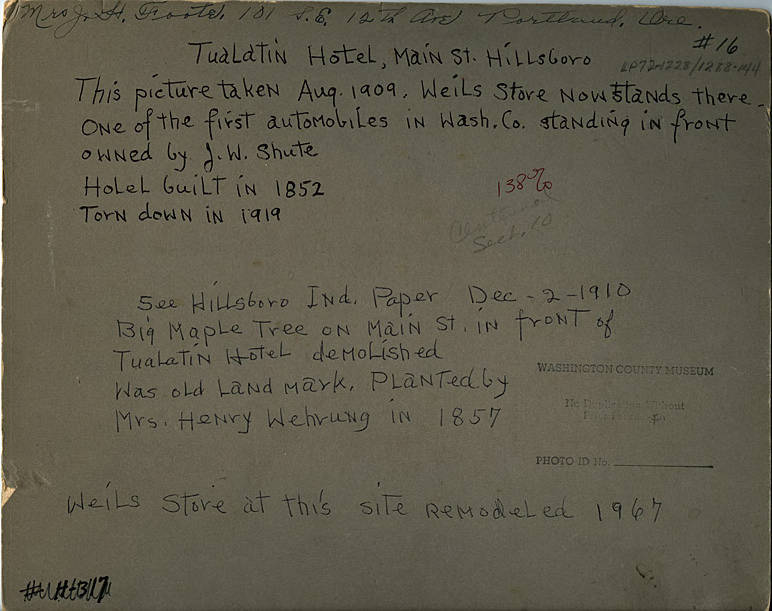 Mrs J. H. Foote, 101 S.E. 12th Ave Portland, Ore.
#16
Tualatin Hotel, Main St. Hillsboro
LP72-1228/1288-144
This picture taken Aug. 1909. Weils Store Now stands there.
One of the first automobiles in Wash. Co. standing in front
owned by J.W. Shute
Hotel built in 1852
138%
Torn down in 1919
Sect. 10
See Hillsboro Ind. Paper Dec - 2 - 1910
Big Maple Tree on Main St. in front of
Tualatin Hotel demolished
WASHINGTON COUNTY MUSEUM
Was old Land mark. Planted by
No Duplication Without
Mrs. Henry Wehrung in 1857
PHOTO ID No.
Weils Store at this site Remodeled 1967